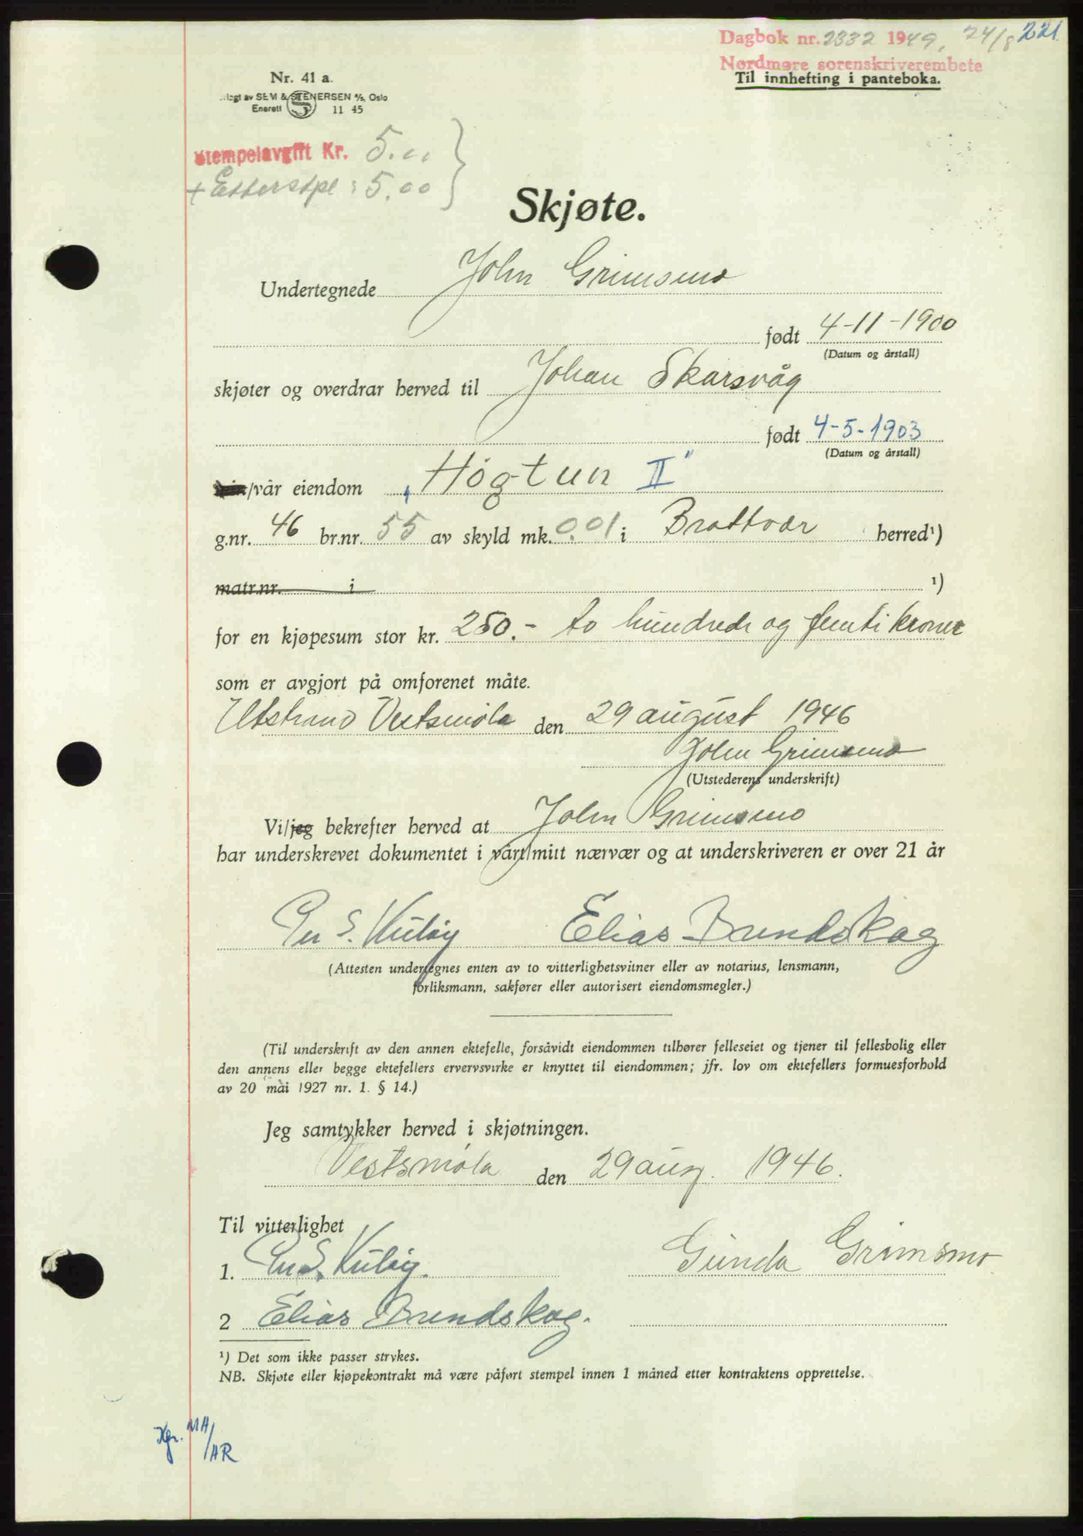 Dagbok nr. 2332 1949, 24/8 221
Nordmøre sorenskriverembete
Til innhefting i panteboka.
Nr. 41 a.
SEM & STENERSEN A/S, Oslo
Enerett S 11 45
Stempelavgift Kr. 5.00
+ Etterstpl: 5.00
Skjøte.
Undertegnede John Grimsmo
født 4-11-1900
(Datum og årstall)
skjøter og overdrar herved til Johan Skarsvåg
født 4-5-1903
(Datum og årstall)
min/vår eiendom „Høgtun II"
g.nr. 46 br.nr. 55 av skyld mk. 0.01 i Brattvær herred¹)
matr.nr. i ¹)
for en kjøpesum stor kr. 250.- to hundrede og femti kroner
som er avgjort på omforenet måte.
Utstrand Vestsmøla den 29 august 1946
John Grimsmo
(Utstederens underskrift)
Vi/jeg bekrefter herved at John Grimsmo
har underskrevet dokumentet i vårt/mitt nærvær og at underskriveren er over 21 år
S. Kuløy Elias Brundskag
(Attesten undertegnes enten av to vitterlighetsvitner eller av notarius, lensmann,
forliksmann, sakfører eller autorisert eiendomsmegler.)
(Til underskrift av den annen ektefelle, forsåvidt eiendommen tilhører felleseiet og tjener til fellesbolig eller
den annens eller begge ektefellers ervervsvirke er knyttet til eiendommen; jfr. lov om ektefellers formuesforhold
av 20 mai 1927 nr. 1. § 14.)
Jeg samtykker herved i skjøtningen.
Vestsmøla den 29 aug. 1946.
Til vitterlighet
1. S. Kuløy. Gunda Grimsmo
2 Elias Brundskag.
¹) Det som ikke passer strykes.
NB. Skjøte eller kjøpekontrakt må være påført stempel innen 1 måned etter kontraktens opprettelse.
Kfr. MA/AR